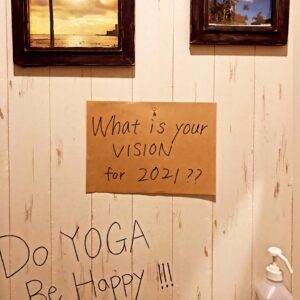 What is your
VISION
for 2021 ??
Do YOGA
Be Happy !!!